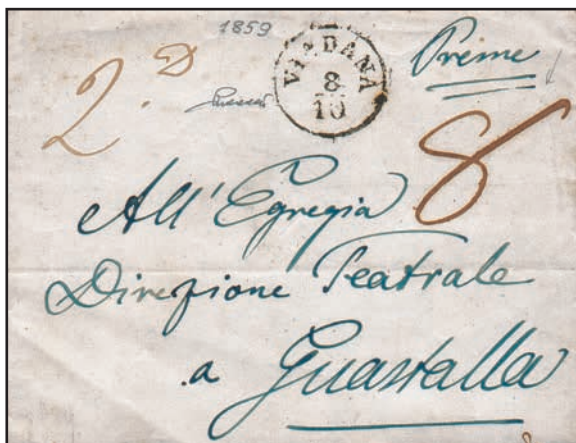 1859
2.D
VIADANA
8
10
Preme
8
All' Egregia
Direzione Teatrale
a Guastalla